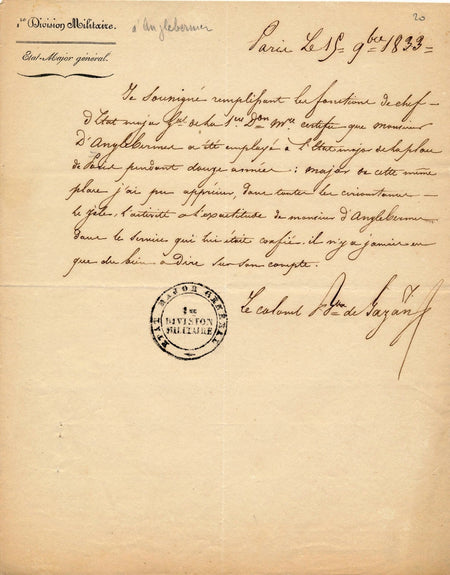 1re Division Militaire.
d'Anglebermer
20
Etat-Major général.
Paris Le 15 9bre 1833
Je Soussigné remplissant les fonctions de chef
d'Etat major Gal de la 1re Don Mre certifie que monsieur
D'Anglebermer a été employé à l'Etat major de la place
de Paris pendant douze années : major de cette même
place j'ai pu apprécier, dans toutes les circonstances
le zèle, l'activité et l'exactitude de monsieur d'Anglebermer
dans le service qui lui était confié. il n'y a jamais eu
que du bien à dire sur son compte.
Le colonel Bon de
ETAT MAJOR GENERAL
1re
DIVISION
MILITAIRE